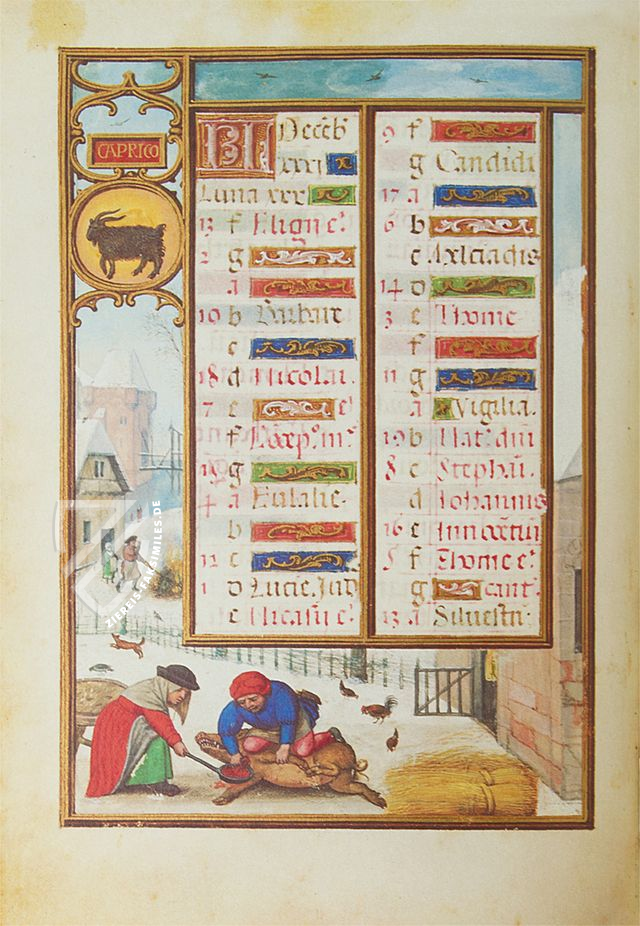 CAPRICO
KL Deceb
xxxi
Luna xxx
13 f Eligii e.
2 g
a
10 b Barbare
c
18 d Nicolai.
7 e e.
f
g
4 a Eulalie.
b
12 c
1 d Lucie. Jud
e Nicasii e.
9 f
g Candidi
17 a
6 b
c
14 d
3 e Thome
f
11 g
a Vigilia.
19 b Nat. dni
8 c Stephani.
d Johannis
16 e Innocetiu
5 f Thome e.
g cant.
13 a Silvestri
ZIEREIS-FACSIMILES.DE